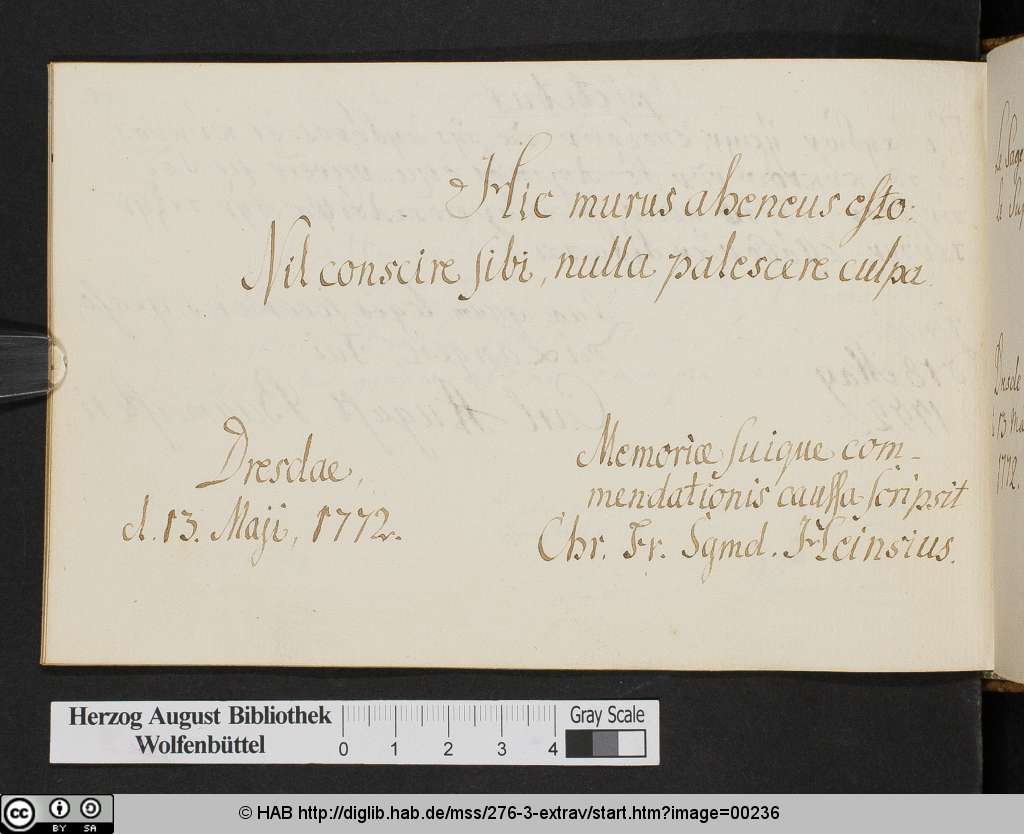 Hic murus aheneus esto:
Nil conscire sibi, nulla palescere culpa.
Dresdae,
d. 13. Maji, 1772.
Memoriæ suique com-
mendationis caussa scripsit
Chr. Fr. Sgmd. Heinsius.
Dresde
1772.
Herzog August Bibliothek
Wolfenbüttel
0 1 2 3 4
Gray Scale
cc BY SA
© HAB http://diglib.hab.de/mss/276-3-extrav/start.htm?image=00236